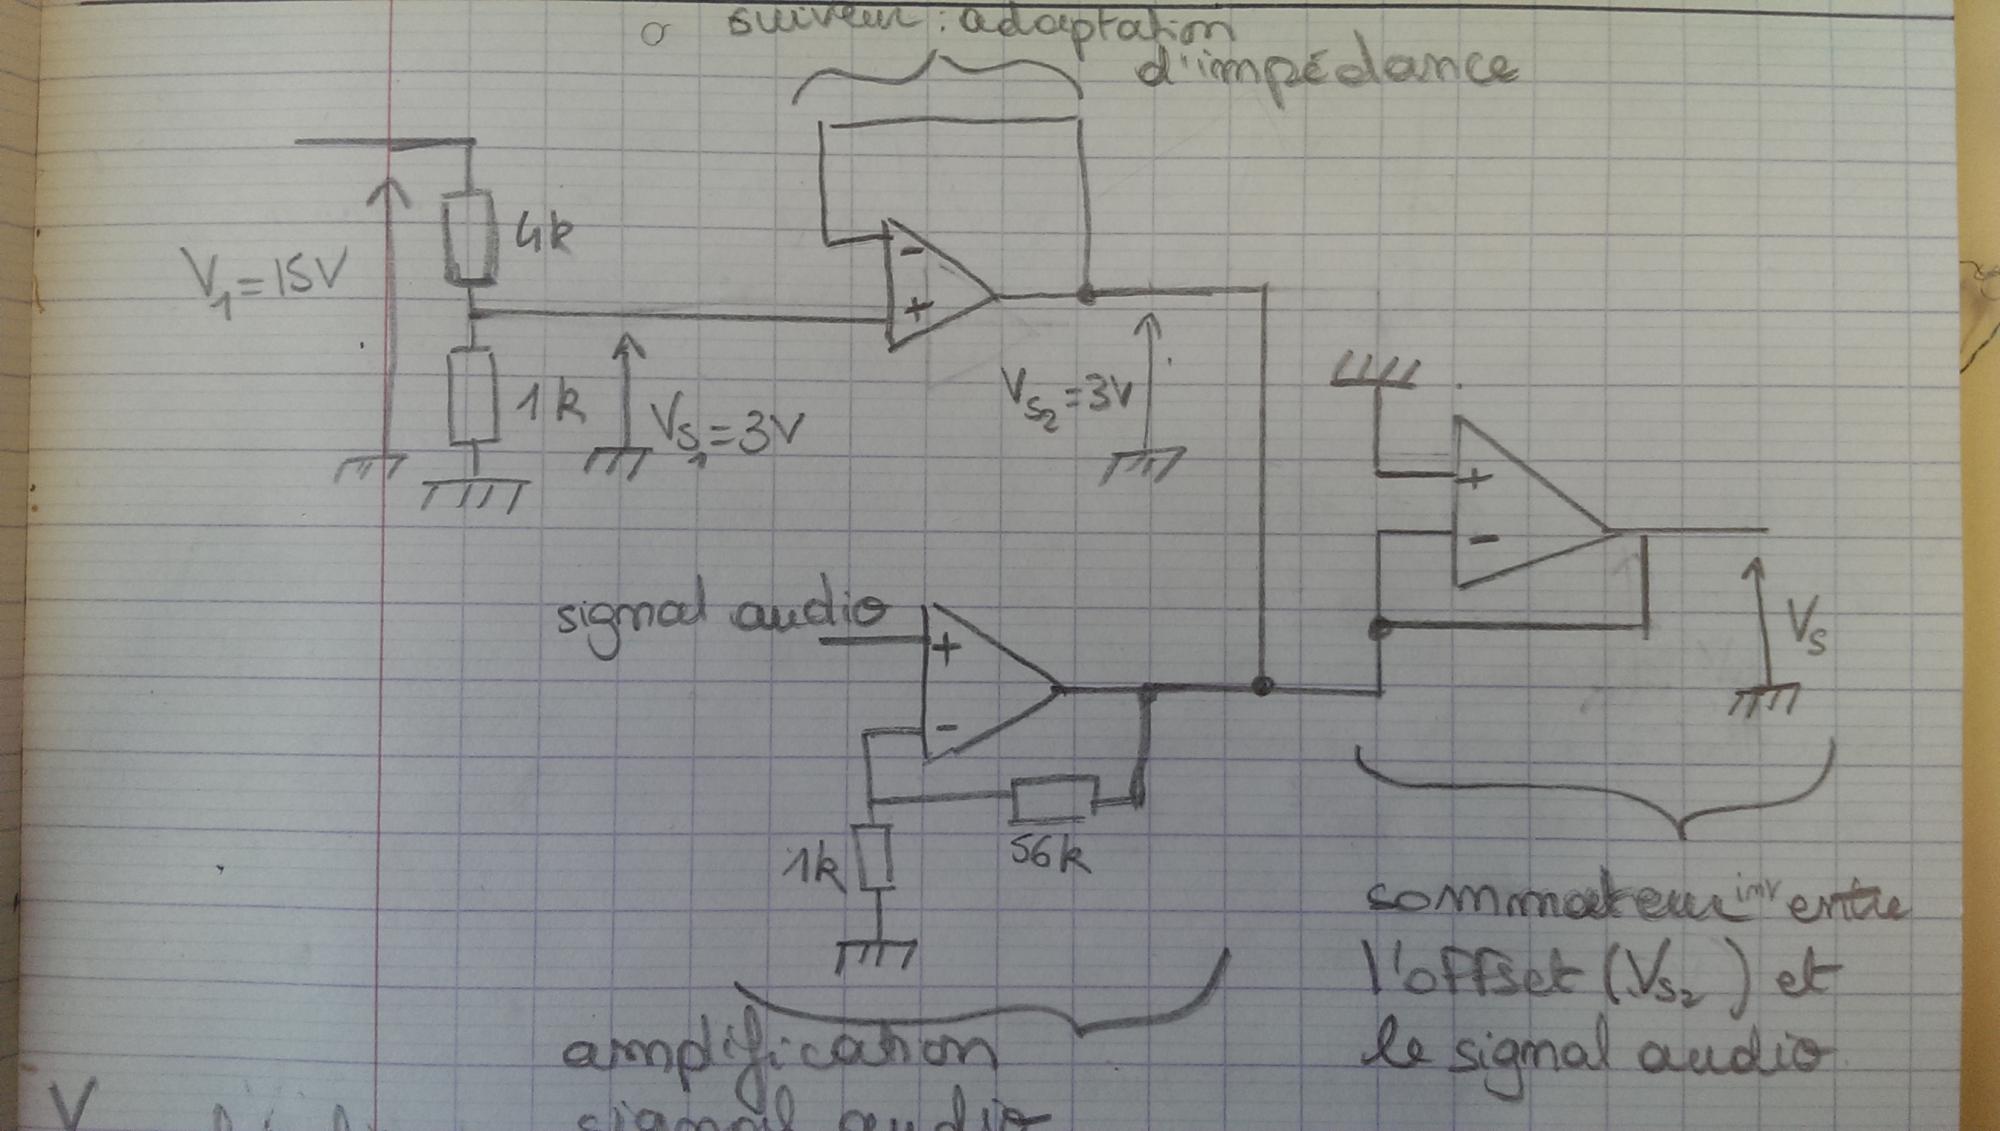 suiveur : adaptation
d'impédance
4k
V1=15V
1k
VS1=3V
-
+
VS2=3V
+
-
signal audio
+
-
VS
56k
1k
sommateur inv entre
l'offset (VS2) et
le signal audio
amplification
signal audio
V